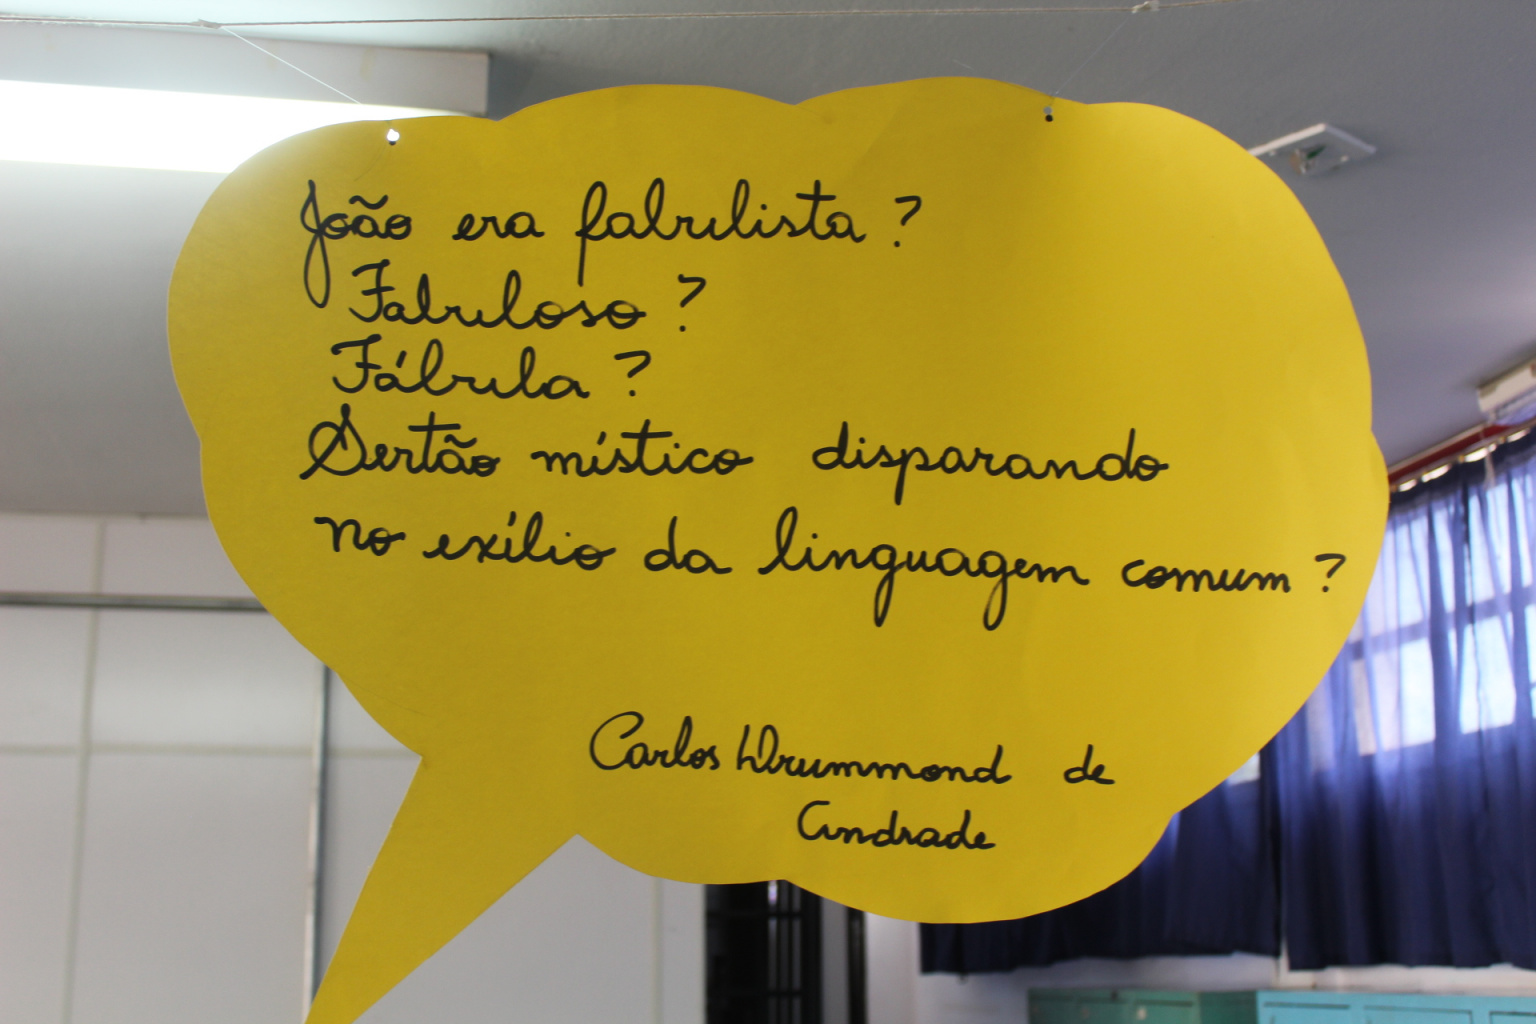 João era fabulista?
Fabuloso?
Fábula?
Sertão místico disparando
no exílio da linguagem comum?
Carlos Drummond de
Andrade